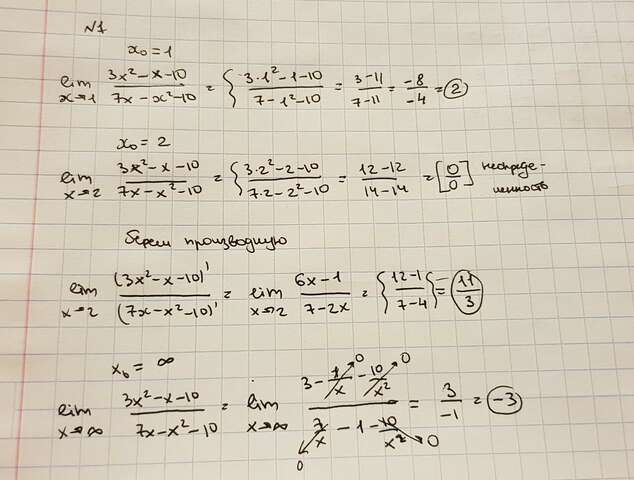 №1
x₀ = 1
lim x→1 (3x² - x - 10)/(7x - x² - 10) = { (3·1² - 1 - 10)/(7 - 1² - 10) = (3 - 11)/(7 - 11) = -8/-4 = 2
x₀ = 2
lim x→2 (3x² - x - 10)/(7x - x² - 10) = { (3·2² - 2 - 10)/(7·2 - 2² - 10) = (12 - 12)/(14 - 14) = [0/0] неопреде-
ленность
берем производную
lim x→2 (3x² - x - 10)'/(7x - x² - 10)' = lim x→2 (6x - 1)/(7 - 2x) = { (12 - 1)/(7 - 4) } = 11/3
x₀ = ∞
lim x→∞ (3x² - x - 10)/(7x - x² - 10) = lim x→∞ (3 - 1/x→0 - 10/x²→0)/(7/x→0 - 1 - 10/x²→0) = 3/-1 = -3